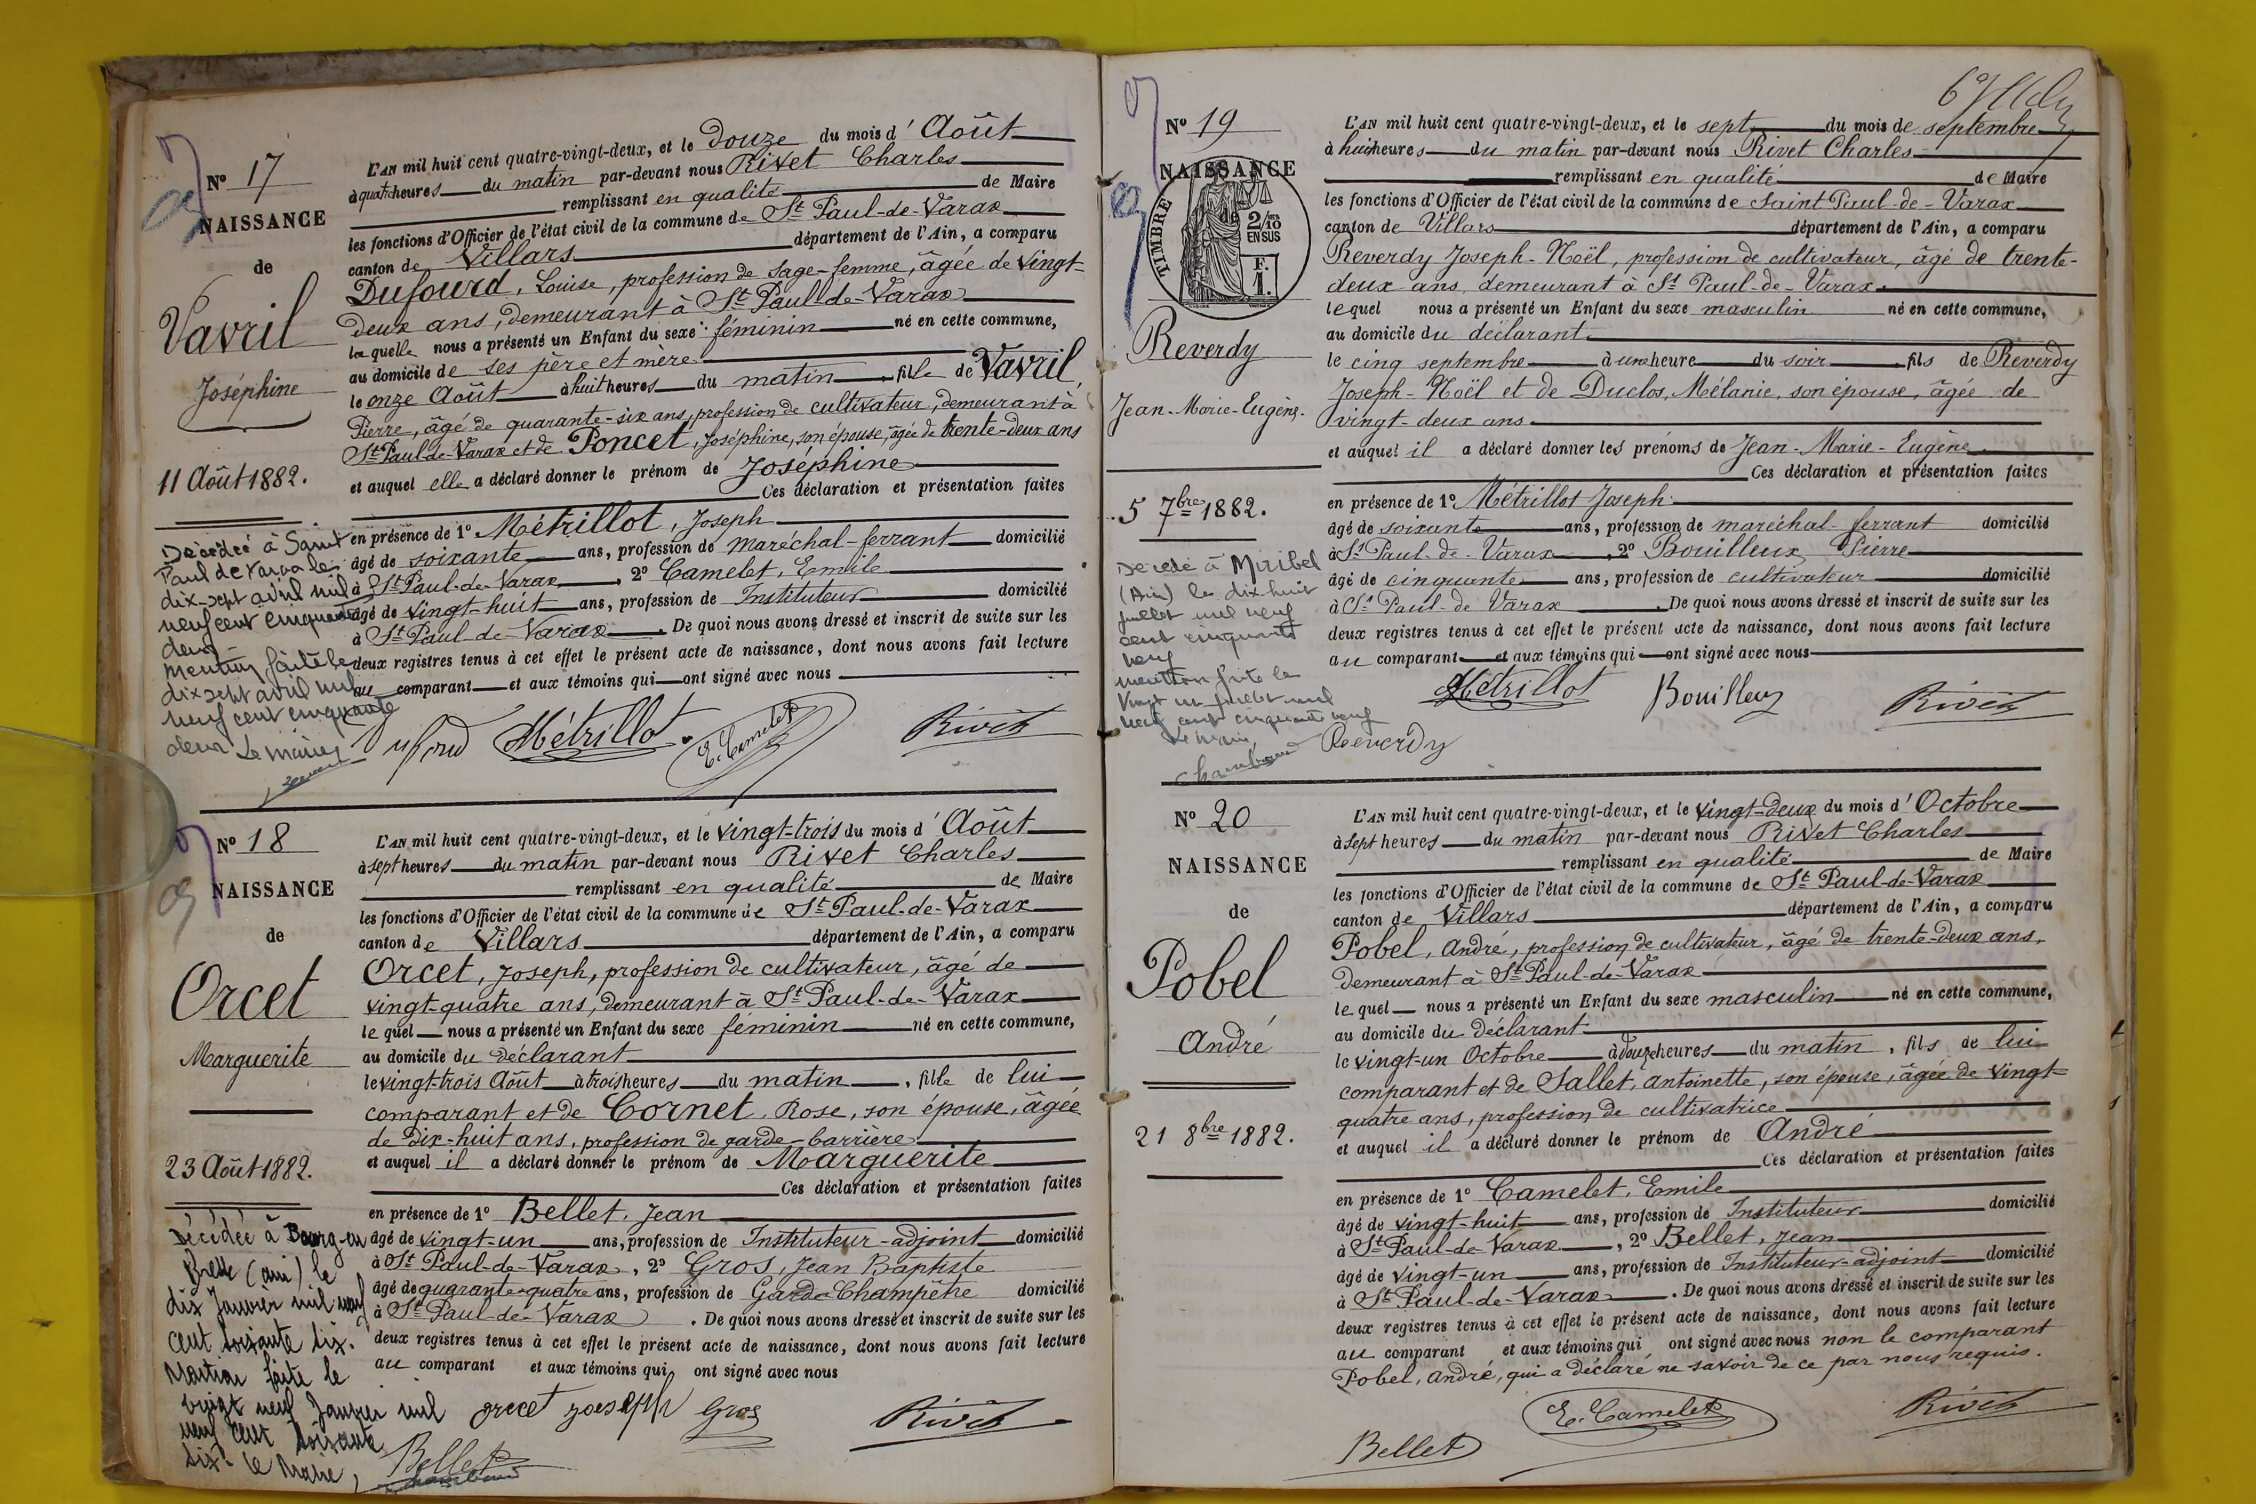 N° 17
NAISSANCE
de
Vavril
Joséphine
11 Août 1882.
Décédée à Saint
Paul de Varax le
dix-sept avril mil
neuf cent cinquante
deux
mention faite le
dix sept avril mil
neuf cent cinquante
deux Le Maire
L'AN mil huit cent quatre-vingt-deux, et le douze du mois d'Août
à quatre heures du matin par-devant nous Rivet Charles
remplissant en qualité de Maire
les fonctions d'Officier de l'état civil de la commune de St Paul-de-Varax
canton de Villars département de l'Ain, a comparu
Dufourd, Louise, profession de Sage-femme, âgée de vingt-
deux ans, demeurant à St Paul-de-Varax
laquelle nous a présenté un Enfant du sexe féminin né en cette commune,
au domicile de ses père et mère
le onze Août à huit heures du matin, fille de Vavril,
Pierre, âgé de quarante-six ans, profession de cultivateur, demeurant à
St Paul-de-Varax et de Poncet, Joséphine, son épouse, âgée de trente-deux ans
et auquel elle a déclaré donner le prénom de Joséphine
Ces déclaration et présentation faites
en présence de 1° Métrillot, Joseph
âgé de soixante ans, profession de Maréchal-ferrant domicilié
à St Paul-de-Varax, 2° Camelet, Emile
âgé de vingt-huit ans, profession de Instituteur domicilié
à St Paul-de-Varax. De quoi nous avons dressé et inscrit de suite sur les
deux registres tenus à cet effet le présent acte de naissance, dont nous avons fait lecture
au comparant et aux témoins qui ont signé avec nous
Dufourd Métrillot E. Camelet Rivet
N° 18
NAISSANCE
de
Orcet
Marguerite
23 Août 1882.
Décédée à Bourg-en
Bresse (ain) le
dix Janvier mil neuf
cent soixante six.
Mention faite le
vingt neuf Janvier mil
neuf cent soixante
six. Le Maire,
L'AN mil huit cent quatre-vingt-deux, et le vingt-trois du mois d'Août
à sept heures du matin par-devant nous Rivet Charles
remplissant en qualité de Maire
les fonctions d'Officier de l'état civil de la commune de St Paul-de-Varax
canton de Villars département de l'Ain, a comparu
Orcet, Joseph, profession de cultivateur, âgé de
vingt-quatre ans, demeurant à St Paul-de-Varax
lequel nous a présenté un Enfant du sexe féminin né en cette commune,
au domicile du déclarant
le vingt-trois Août à trois heures du matin, fille de lui
comparant et de Cornet, Rose, son épouse, âgée
de dix-huit ans, profession de garde-barrière
et auquel il a déclaré donner le prénom de Marguerite
Ces déclaration et présentation faites
en présence de 1° Bellet, Jean
âgé de vingt-un ans, profession de Instituteur-adjoint domicilié
à St Paul-de-Varax, 2° Gros, Jean Baptiste
âgé de quarante-quatre ans, profession de Garde Champêtre domicilié
à St Paul-de-Varax. De quoi nous avons dressé et inscrit de suite sur les
deux registres tenus à cet effet le présent acte de naissance, dont nous avons fait lecture
au comparant et aux témoins qui ont signé avec nous
orcet joseph Gros Rivet
Bellet
N° 19
NAISSANCE
de
TIMBRE
2/10
EN SUS
F.
1.
Reverdy
Jean-Marie-Eugène.
5 7bre 1882.
Décédé à Miribel
(Ain) le dix huit
juillet mil neuf
cent cinquante
neuf
mention faite le
vingt un juillet mil
neuf cent cinquante neuf
Le Maire
L'AN mil huit cent quatre-vingt-deux, et le sept du mois de septembre
à huit heures du matin par-devant nous Rivet Charles
remplissant en qualité de Maire
les fonctions d'Officier de l'état civil de la commune de Saint Paul-de-Varax
canton de Villars département de l'Ain, a comparu
Reverdy Joseph-Noël, profession de cultivateur, âgé de trente-
deux ans, demeurant à St Paul-de-Varax.
lequel nous a présenté un Enfant du sexe masculin né en cette commune,
au domicile du déclarant
le cinq septembre à une heure du soir fils de Reverdy
Joseph-Noël et de Duclos, Mélanie, son épouse, âgée de
vingt-deux ans
et auquel il a déclaré donner les prénoms de Jean-Marie-Eugène
Ces déclaration et présentation faites
en présence de 1° Métrillot Joseph
âgé de soixante ans, profession de maréchal-ferrant domicilié
à St Paul-de-Varax, 2° Bouilleux Pierre
âgé de cinquante ans, profession de cultivateur domicilié
à St Paul-de Varax. De quoi nous avons dressé et inscrit de suite sur les
deux registres tenus à cet effet le présent acte de naissance, dont nous avons fait lecture
au comparant et aux témoins qui ont signé avec nous
Métrillot Bouilleux Rivet
Reverdy
N° 20
NAISSANCE
de
Pobel
André
21 8bre 1882.
L'AN mil huit cent quatre-vingt-deux, et le vingt-deux du mois d'Octobre
à sept heures du matin par-devant nous Rivet Charles
remplissant en qualité de Maire
les fonctions d'Officier de l'état civil de la commune de St Paul-de-Varax
canton de Villars département de l'Ain, a comparu
Pobel, André, profession de cultivateur, âgé de trente-deux ans,
demeurant à St Paul-de-Varax
lequel nous a présenté un Enfant du sexe masculin né en cette commune,
au domicile du déclarant
le vingt-un Octobre à douze heures du matin, fils de lui
comparant et de Sallet, Antoinette, son épouse, âgée de vingt-
quatre ans, profession de cultivatrice
et auquel il a déclaré donner le prénom de André
Ces déclaration et présentation faites
en présence de 1° Camelet, Emile
âgé de vingt-huit ans, profession de Instituteur domicilié
à St Paul-de-Varax, 2° Bellet, Jean
âgé de vingt-un ans, profession de Instituteur-adjoint domicilié
à St Paul-de-Varax. De quoi nous avons dressé et inscrit de suite sur les
deux registres tenus à cet effet le présent acte de naissance, dont nous avons fait lecture
au comparant et aux témoins qui ont signé avec nous non le comparant
Pobel, André, qui a déclaré ne savoir de ce par nous requis.
E. Camelet Rivet
Bellet